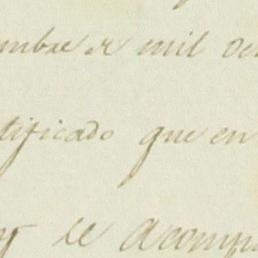 mbre de mil oc
tificado que en
se acomp